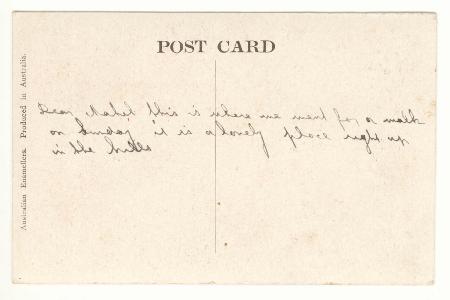 POST CARD
Dear Mabel this is where we went for a walk
on Sunday it is a lovely place right up
in the hills
Australian Enamellers. Produced in Australia.